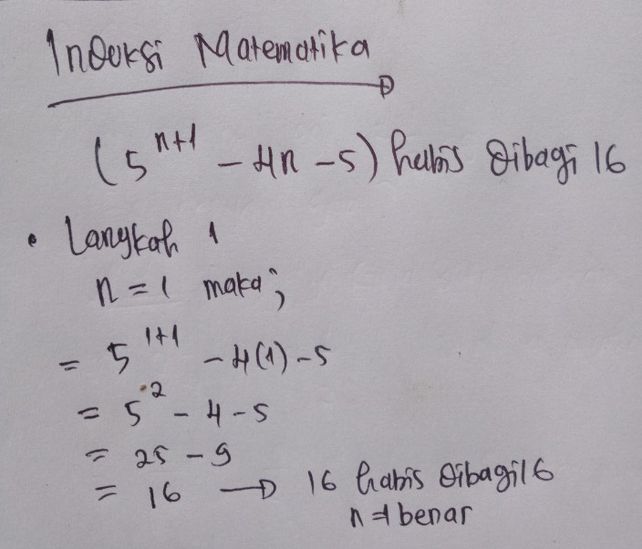 Induksi Matematika
(5^{n+1} - 4n - 5) habis dibagi 16
• Langkah 1
n = 1 maka;
= 5^{1+1} - 4(1) - 5
= 5^2 - 4 - 5
= 25 - 9
= 16 → 16 habis dibagi 16
n=1 benar